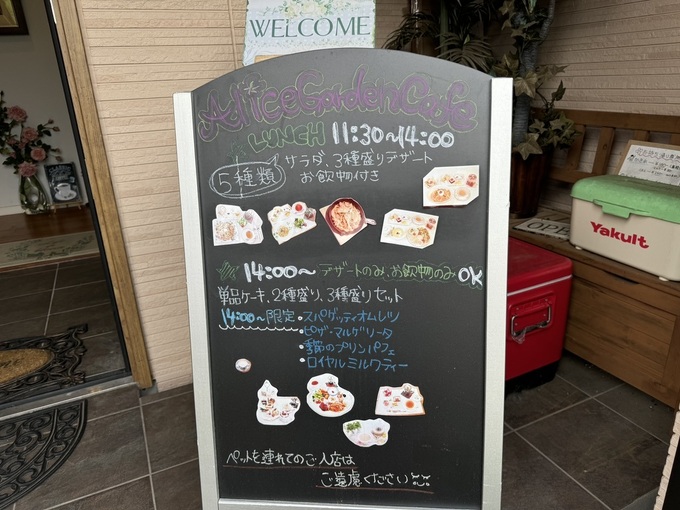 WELCOME
Alice Garden Cafe
LUNCH 11:30~14:00
5種類
サラダ、3種盛りデザート
お飲物付き
14:00~ デザートのみ、お飲物のみOK
単品ケーキ、2種盛り、3種盛りセット
14:00~限定・スパゲッティオムレツ
・ピザ・マルゲリータ
・季節のプリンパフェ
・ロイヤルミルクティー
ペットを連れてのご入店は
ご遠慮ください
Yakult
OPEN